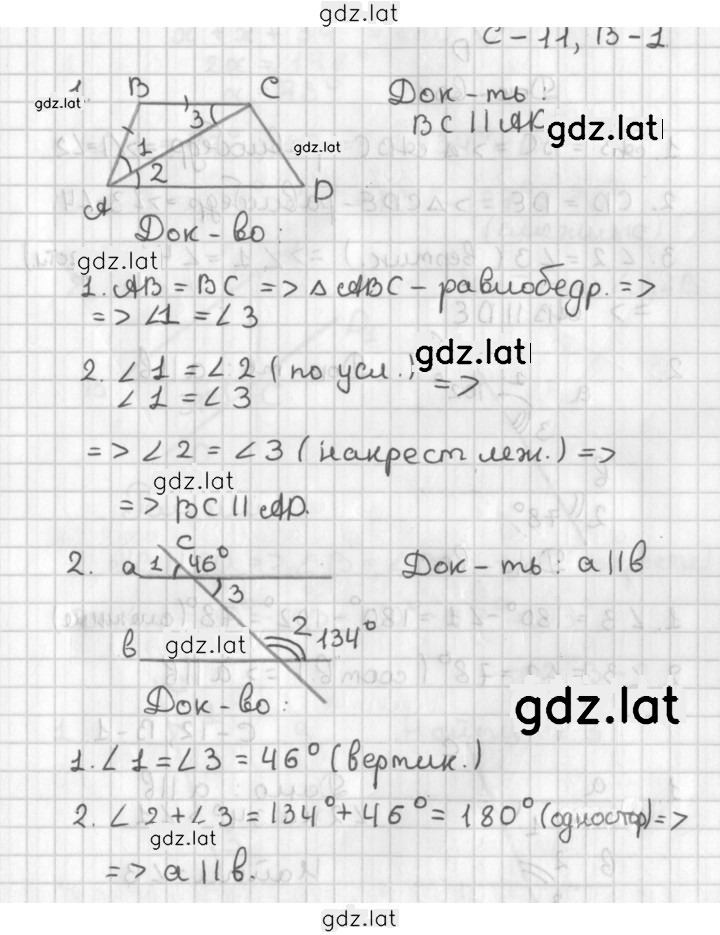 gdz.lat
С-11, В-1
1
B C
3
1
2
A D
Док-ть:
BC || AK
gdz.lat
gdz.lat
gdz.lat
Док-во:
gdz.lat
1. AB = BC => △ ABC - равнобедр. =>
=> ∠1 = ∠3
2. ∠1 = ∠2 (по усл.) =>
∠1 = ∠3
gdz.lat
=> ∠2 = ∠3 (накрест леж.) =>
gdz.lat
=> BC || AD.
2. a 1 c 46°
3
b gdz.lat 2 134°
Док-ть: a || b
Док-во:
gdz.lat
1. ∠1 = ∠3 = 46° (вертик.)
2. ∠2 + ∠3 = 134° + 46° = 180° (одностор) =>
gdz.lat
=> a || b.
gdz.lat